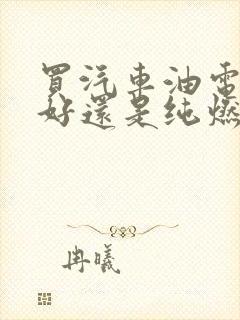 買汽車油電
好還是纯燃
冉曦